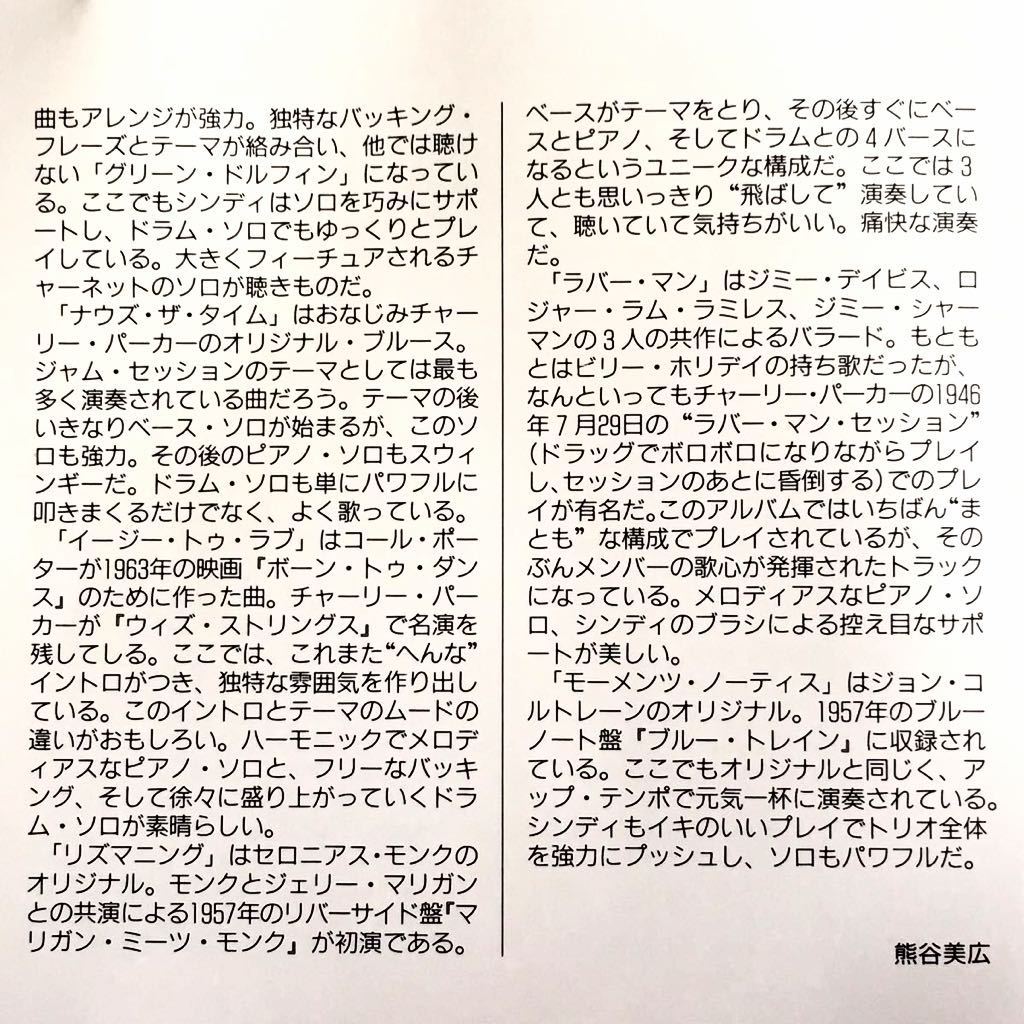 曲もアレンジが強力。独特なバッキング・
フレーズとテーマが絡み合い、他では聴け
ない「グリーン・ドルフィン」になってい
る。ここでもシンディはソロを巧みにサポ
ートし、ドラム・ソロでもゆっくりとプレ
イしている。大きくフィーチュアされるチ
ャーネットのソロが聴きものだ。
「ナウズ・ザ・タイム」はおなじみチャー
リー・パーカーのオリジナル・ブルース。
ジャム・セッションのテーマとしては最も
多く演奏されている曲だろう。テーマの後
いきなりベース・ソロが始まるが、このソ
ロも強力。その後のピアノ・ソロもスウィ
ンギーだ。ドラム・ソロも単にパワフルに
叩きまくるだけでなく、よく歌っている。
「イージー・トゥ・ラブ」はコール・ポー
ターが1963年の映画『ボーン・トゥ・ダン
ス』のために作った曲。チャーリー・パー
カーが『ウィズ・ストリングス』で名演を
残してしる。ここでは、これまた“へんな”
イントロがつき、独特な雰囲気を作り出し
ている。このイントロとテーマのムードの
違いがおもしろい。ハーモニックでメロデ
ィアスなピアノ・ソロと、フリーなバッキ
ング、そして徐々に盛り上がっていくドラ
ム・ソロが素晴らしい。
「リズマニング」はセロニアス・モンクの
オリジナル。モンクとジェリー・マリガン
との共演による1957年のリバーサイド盤『マ
リガン・ミーツ・モンク』が初演である。
ベースがテーマをとり、その後すぐにベー
スとピアノ、そしてドラムとの4バースに
なるというユニークな構成だ。ここでは3
人とも思いっきり“飛ばして”演奏してい
て、聴いていて気持ちがいい。痛快な演奏
だ。
「ラバー・マン」はジミー・デイビス、ロ
ジャー・ラム・ラミレス、ジミー・シャー
マンの3人の共作によるバラード。もとも
とはビリー・ホリデイの持ち歌だったが、
なんといってもチャーリー・パーカーの1946
年7月29日の“ラバー・マン・セッション”
(ドラッグでボロボロになりながらプレイ
し、セッションのあとに昏倒する)でのプレ
イが有名だ。このアルバムではいちばん“ま
とも”な構成でプレイされているが、その
ぶんメンバーの歌心が発揮されたトラック
になっている。メロディアスなピアノ・ソ
ロ、シンディのブラシによる控え目なサポ
ートが美しい。
「モーメンツ・ノーティス」はジョン・コ
ルトレーンのオリジナル。1957年のブルー
ノート盤『ブルー・トレイン』に収録され
ている。ここでもオリジナルと同じく、ア
ップ・テンポで元気一杯に演奏されている。
シンディもイキのいいプレイでトリオ全体
を強力にプッシュし、ソロもパワフルだ。
熊谷美広